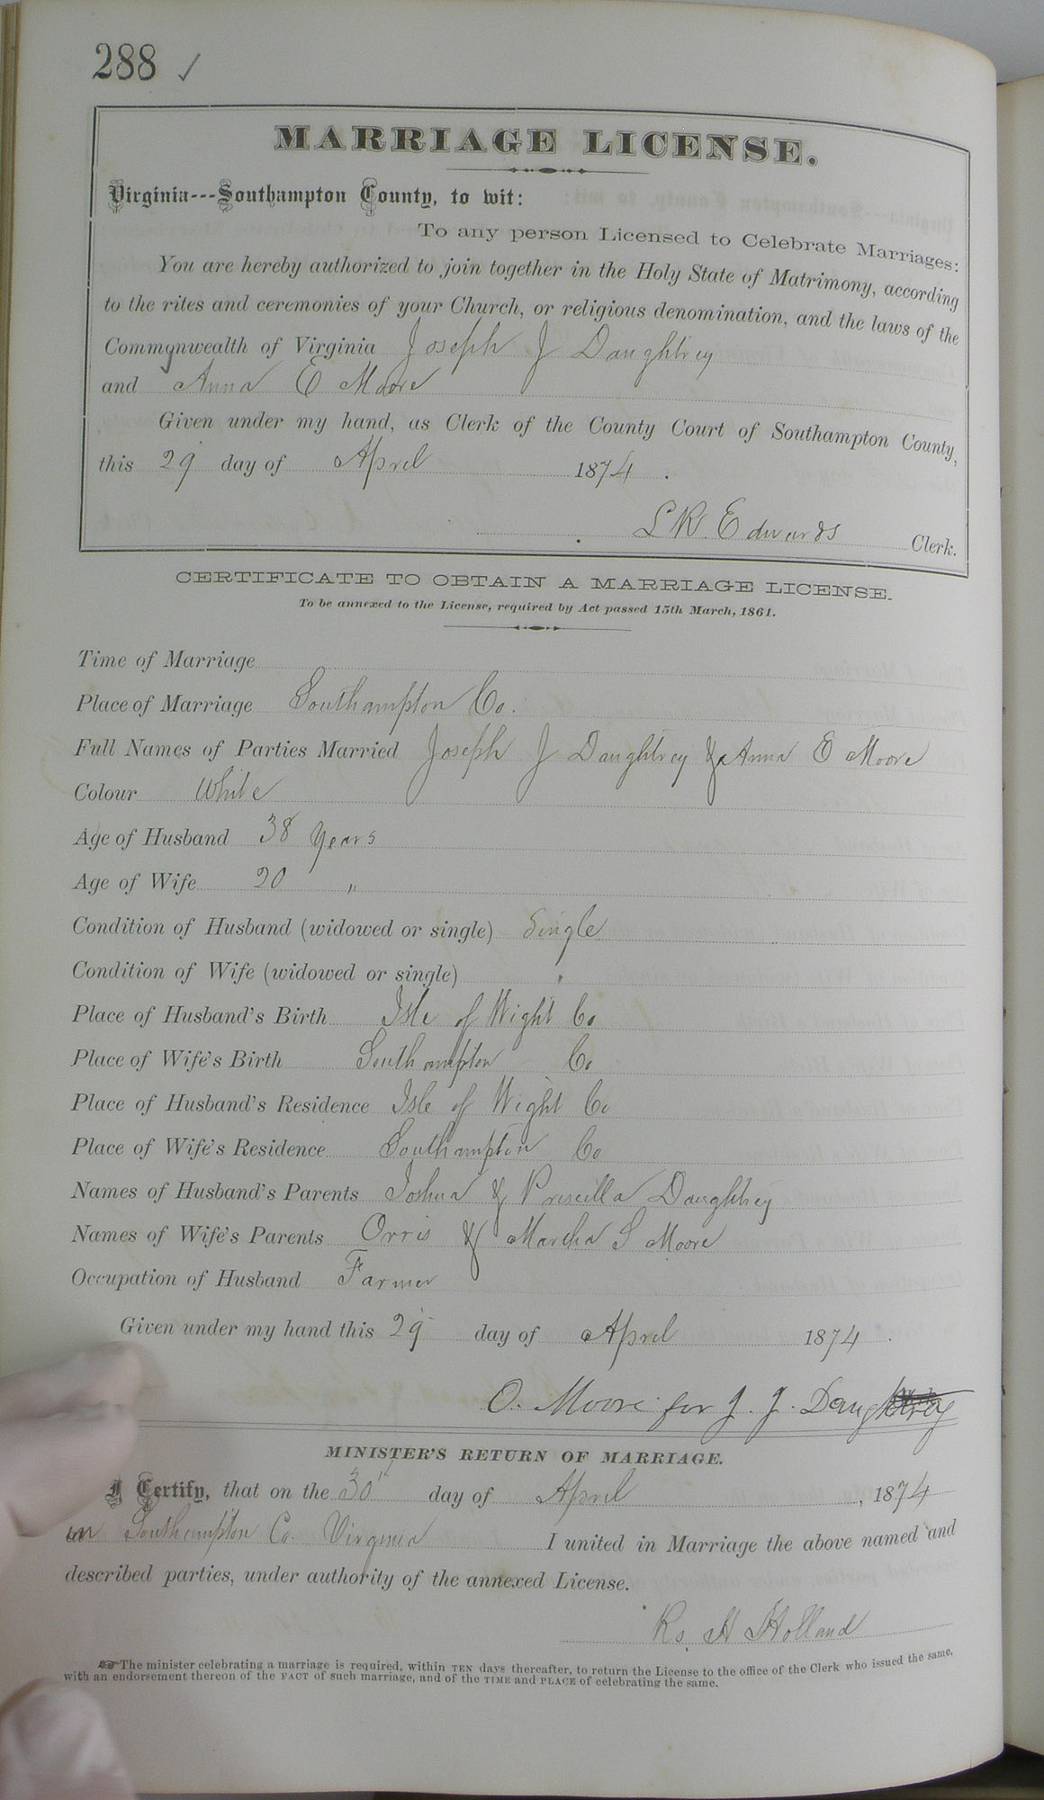 288 ✓
MARRIAGE LICENSE.
Virginia---Southampton County, to wit:
To any person Licensed to Celebrate Marriages:
You are hereby authorized to join together in the Holy State of Matrimony, according
to the rites and ceremonies of your Church, or religious denomination, and the laws of the
Commonwealth of Virginia Joseph J Daughtrey
and Anna E Moore
Given under my hand, as Clerk of the County Court of Southampton County,
this 29 day of April 1874.
L R Edwards Clerk.
CERTIFICATE TO OBTAIN A MARRIAGE LICENSE.
To be annexed to the License, required by Act passed 15th March, 1861.
Time of Marriage
Place of Marriage Southampton Co.
Full Names of Parties Married Joseph J Daughtrey & Anna E Moore
Colour White
Age of Husband 38 years
Age of Wife 20 "
Condition of Husband (widowed or single) Single
Condition of Wife (widowed or single) "
Place of Husband's Birth Isle of Wight Co
Place of Wife's Birth Southampton Co
Place of Husband's Residence Isle of Wight Co
Place of Wife's Residence Southampton Co
Names of Husband's Parents Joshua & Priscilla Daughtrey
Names of Wife's Parents Orris & Martha S Moore
Occupation of Husband Farmer
Given under my hand this 29 day of April 1874.
O. Moore for J. J. Daughtrey
MINISTER'S RETURN OF MARRIAGE.
I Certify, that on the 30" day of April, 1874
in Southampton Co. Virginia I united in Marriage the above named and
described parties, under authority of the annexed License.
H Holland
The minister celebrating a marriage is required, within TEN days thereafter, to return the License to the office of the Clerk who issued the same,
with an endorsement thereon of the FACT of such marriage, and of the TIME and PLACE of celebrating the same.